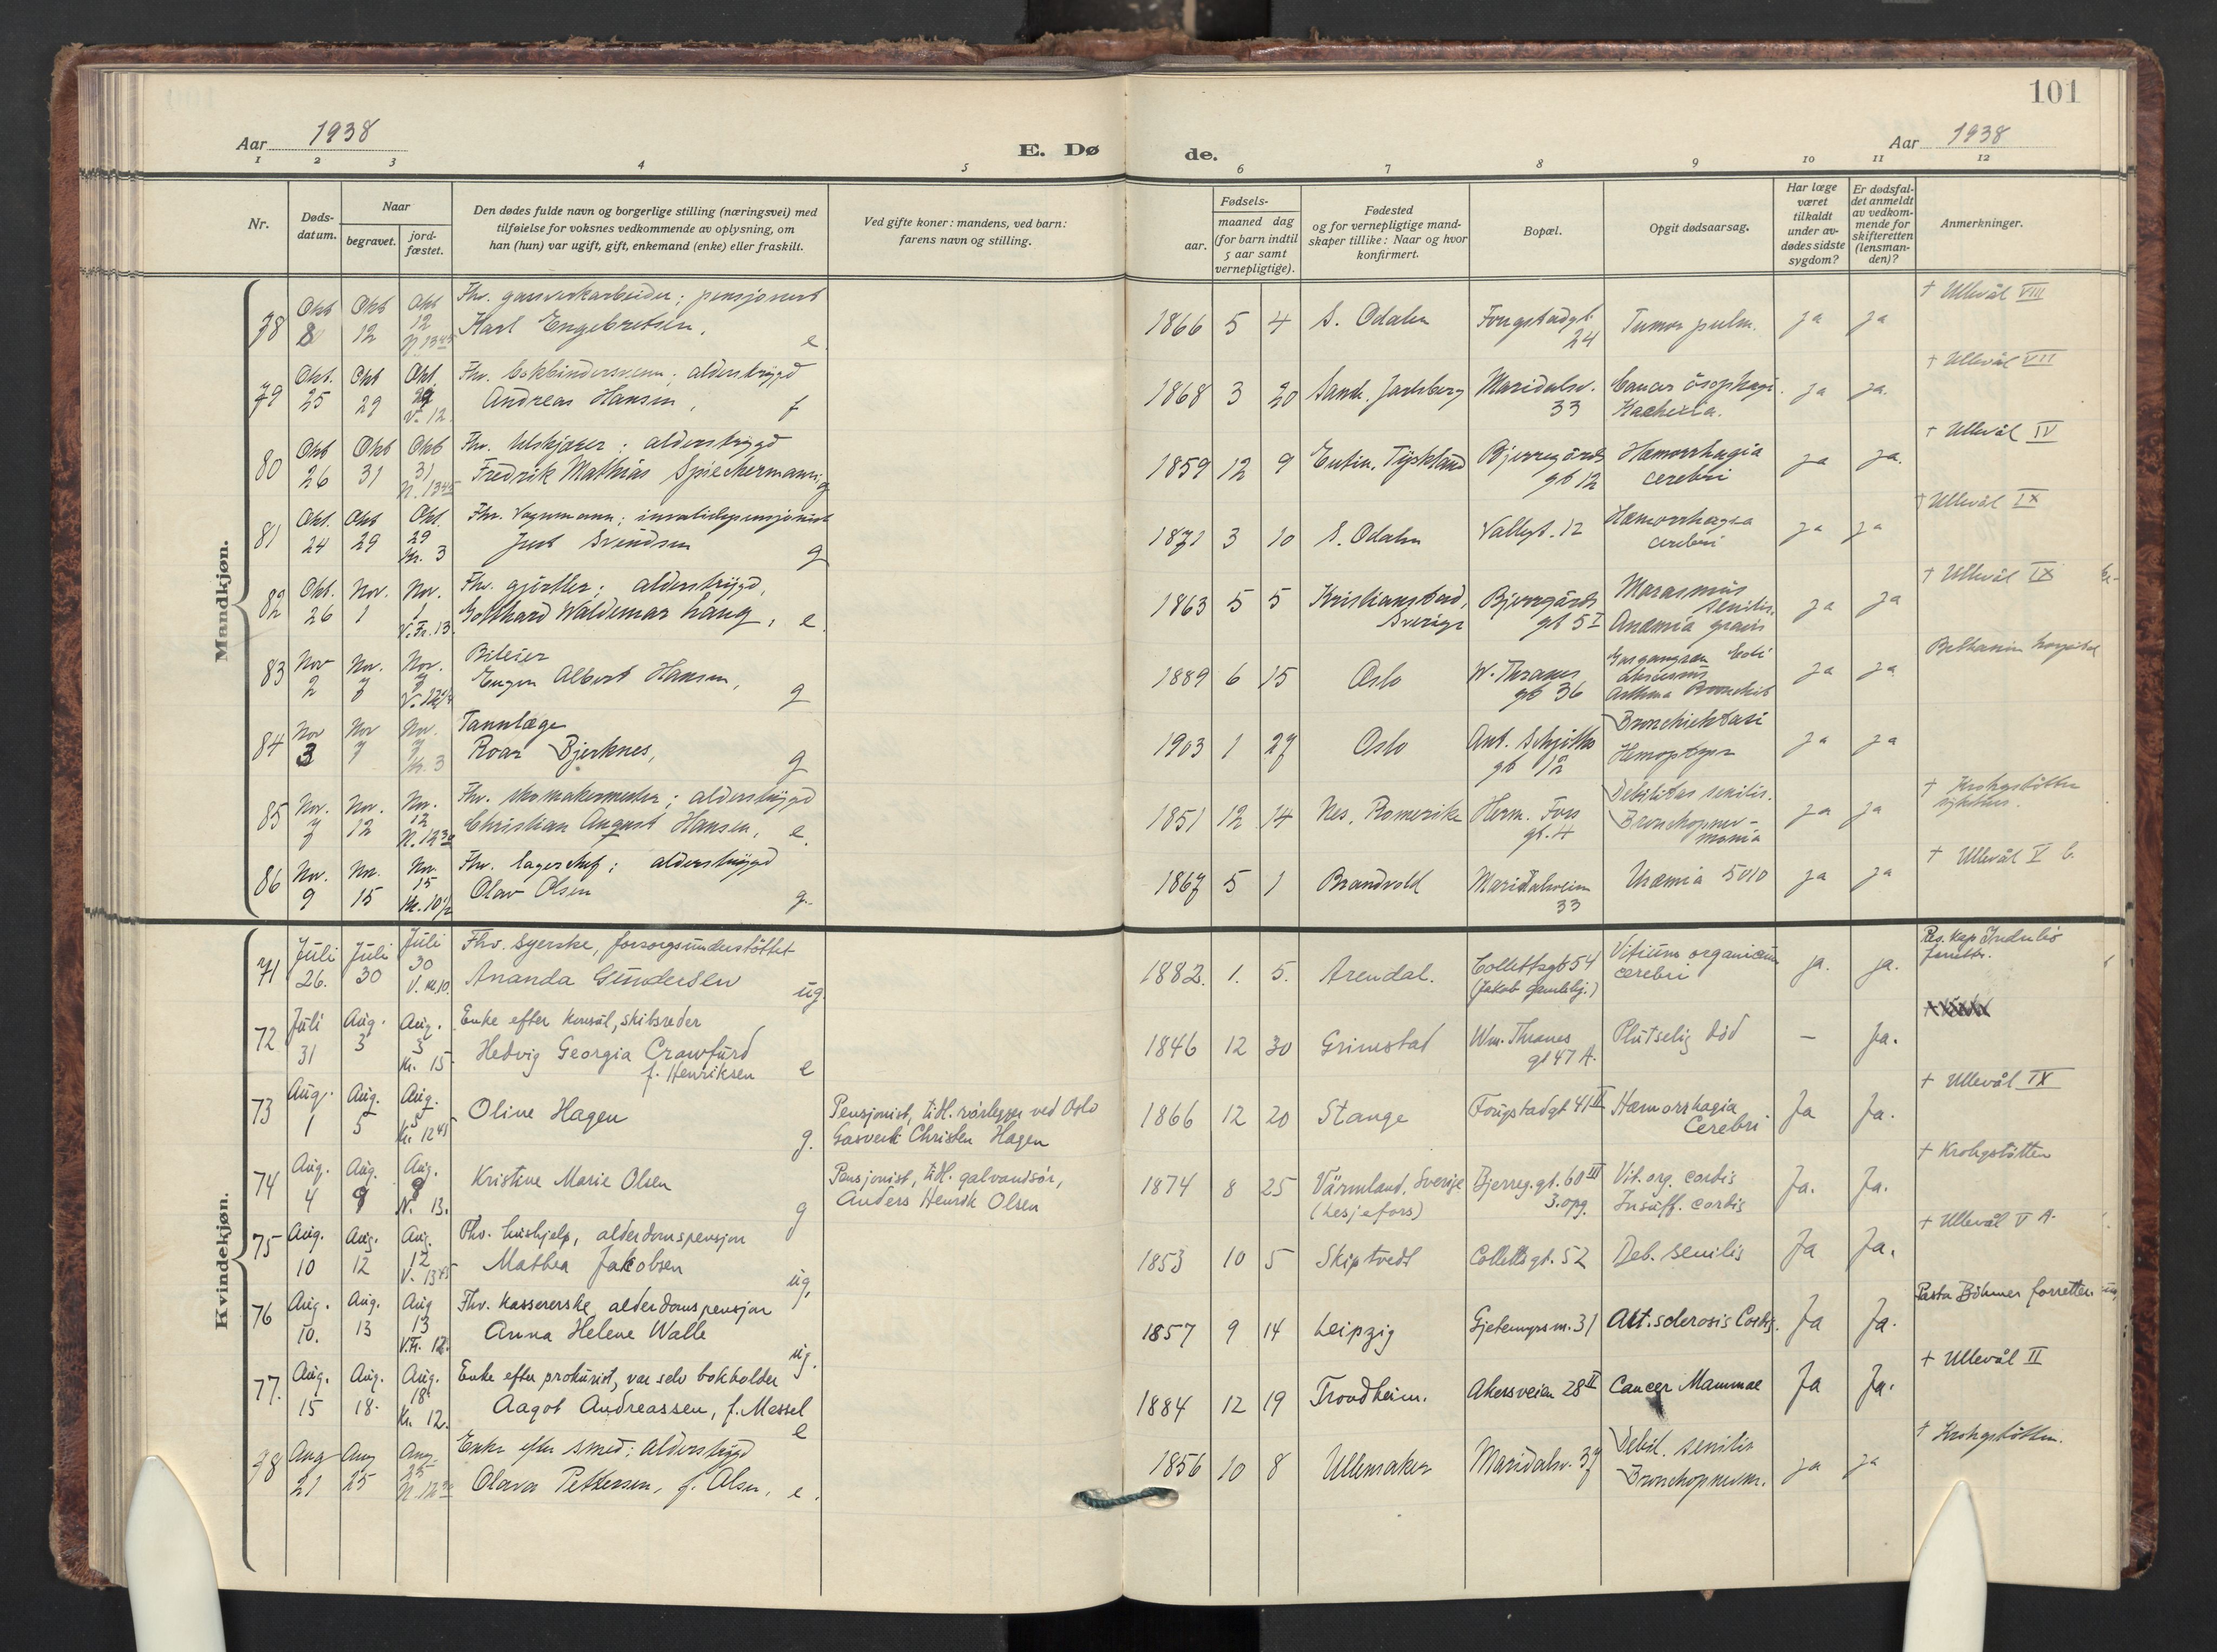 101
Aar 1938
E. Dø
de.
Aar 1938
1 2 3 4 5 6 7 8 9 10 11 12
Nr.
Døds-
datum.
Naar
begravet.
jord-
fæstet.
Den dødes fulde navn og borgerlige stilling (næringsvei) med
tilføielse for voksnes vedkommende av oplysning, om
han (hun) var ugift, gift, enkemand (enke) eller fraskilt.
Ved gifte koner: mandens, ved barn:
farens navn og stilling.
Fødsels-
aar.
maaned dag
(for barn indtil
5 aar samt
vernepligtige).
Fødested
og for vernepligtige mand-
skaper tillike: Naar og hvor
konfirmert.
Bopæl.
Opgit dødsaarsag.
Har læge
været
tilkaldt
under av-
dødes sidste
sygdom?
Er dødsfal-
det anmeldt
av vedkom-
mende for
skifteretten
(lensman-
den)?
Anmerkninger.
Mandkjøn.
78 Okt 8 Okt 12 Okt 12 N. 13 45 Fhv. gassverkarbeider; pensjonert
Karl Engebretsen, e. 1866 5 4 S. Odalen Fougstadgt. 24 Tumor pulm. ja ja + Ullevål VIII
79 Okt. 25 Okt 29 Okt. 29 V. 12. Fhv. bokbindersvenn; alderstrygd
Andreas Hansen, f 1868 3 20 Sand. Jarlsberg Maridalsv. 33 Cancer øsophagi. Kachexia. ja ja. + Ullevål VII
80 Okt 26 Okt 31 Okt 31 N. 13 45 Fhv. ; alderstrygd
Fredrik Mathias Spieckermann, g 1859 12 9 Eutin. Tyskland Bjerregårds gt 12 Hæmorrhagia cerebri ja ja. + Ullevål IV
81 Okt. 24 Okt 29 Okt. 29 Kr. 3 Fhv. Vognmann; invalidepensjonist
Just Svendsen g 1871 3 10 S. Odalen Vallegt. 12 Hæmorrhagia cerebri ja ja + Ullevål IX
82 Okt. 26 Nov. 1 Nov. 1 V. Fr. 13. Fhv. gjørtler; alderstrygd,
Gotthard Waldemar Lang, e. 1863 5 5 Kristianstad, Sverige Bjerregårds gt 5 I Marasmus senilis. Anæmia gravis ja ja + Ullevål IX
83 Nov 2 Nov. 7 Nov. 7 V. 12 1/4 Bileier
Eugen Albert Hansen, g 1889 6 15 Oslo W. Thranes gt 36 Asthma Bronchit ja ja Bethanien hospital
84 Nov 3 Nov 7 Nov. 7 Kr. 3 Tannlæge
Roar Bjerknes, g 1903 1 27 Oslo Ant. Schjøths gt 12 Bronchiektasi Hemoptyse ja ja
85 Nov. 7 Nov. 12 Nov. 12 N. 12 30 Fhv. skomakermester; alderstrygd
Christian August Hansen, e. 1851 12 14 Nes, Romerike Herm. Foss gt. 4 Debilitas senilis. Bronchopnev-monia ja ja + Krohgstøtten sykehus.
86 Nov. 9 Nov. 15 Nov. 15 Kr. 10 1/2 Fhv. lagerchef; alderstrygd
Olav Olsen g. 1867 5 1 Brandvold Maridalsveien 33 Uræmia 5010 ja ja + Ullevål V C.
Kvindekjøn.
71 Juli 26. Juli 30 Juli 30 V. kl. 10. Fhv. syerske, forsorgsunderstøttet
Ananda Gundersen ug 1882. 1. 5. Arendal. Collettsgt 54 (Jakob gamlehj.) Vitium organicum cerebri ja. ja. Res. kap Indulio
72 Juli 31 Aug. 3 Aug. 3 Kr. 15 Enke efter konsul, skibsreder
Hedvig Georgia Crawfurd
f. Henriksen e 1846 12 30 Grimstad Wm. Thranes gt 47 A. Plutselig död – Ja.
73 Aug. 1 Aug. 5 Aug. 5 Kr. 12 45 Oline Hagen g. Pensjonist, tidl. rørlegger ved Oslo
Gasverk Christen Hagen 1866 12 20 Stange Fougstadgt 41 II Hæmorrhagia Cerebri Ja Ja. + Ullevål IX
74 Aug. 4 Aug. 9 Aug. 9 N. 13. Kristine Marie Olsen g Pensjonist, tidl. galvanisör,
Anders Henrik Olsen 1874 8 25 Värmland, Sverige (Lesjefors) Bjerreg.gt. 60 III 3. opg. Vit. org. cordis Insuff. cordis Ja. Ja. + Krohgstøtten
75 Aug. 10 Aug. 12 Aug. 12 V. 13 45 Fhv. hushjelp, alderdomspensjon
Mathea Jakobsen ug. 1853 10 5 Skiptvedt Collettsgt. 52 Deb. senilis Ja Ja. + Ullevål V A.
76 Aug. 10. Aug. 13 Aug 13 V. Fr. 12. Fhv. kassererske, alderdomspensjon
Anna Helene Walle ug. 1857 9 14 Leipzig Gjetemyrsm. 31 Art. sclerosis Cordis. Ja Ja. Pastor Böhmer forretter
77. Aug. 15 Aug. 18. Aug. 18 Kr. 12. Enke efter prokurist, var selv bokholder
Aagot Andreassen, f. Messel e 1884 12 19 Trondheim. Akersveien 28 II Cancer Mammae Ja Ja. + Ullevål II
78 Aug 21 Aug 25 Aug. 25 N. 12 30 Enke efter smed; alderstrygd
Olava Pettersen, f. Olsen, e. 1856 10 8 Ullensaker Maridalsv. 37 Debil. senilis Bronchopnevm. ja ja + Krohgstøtten.